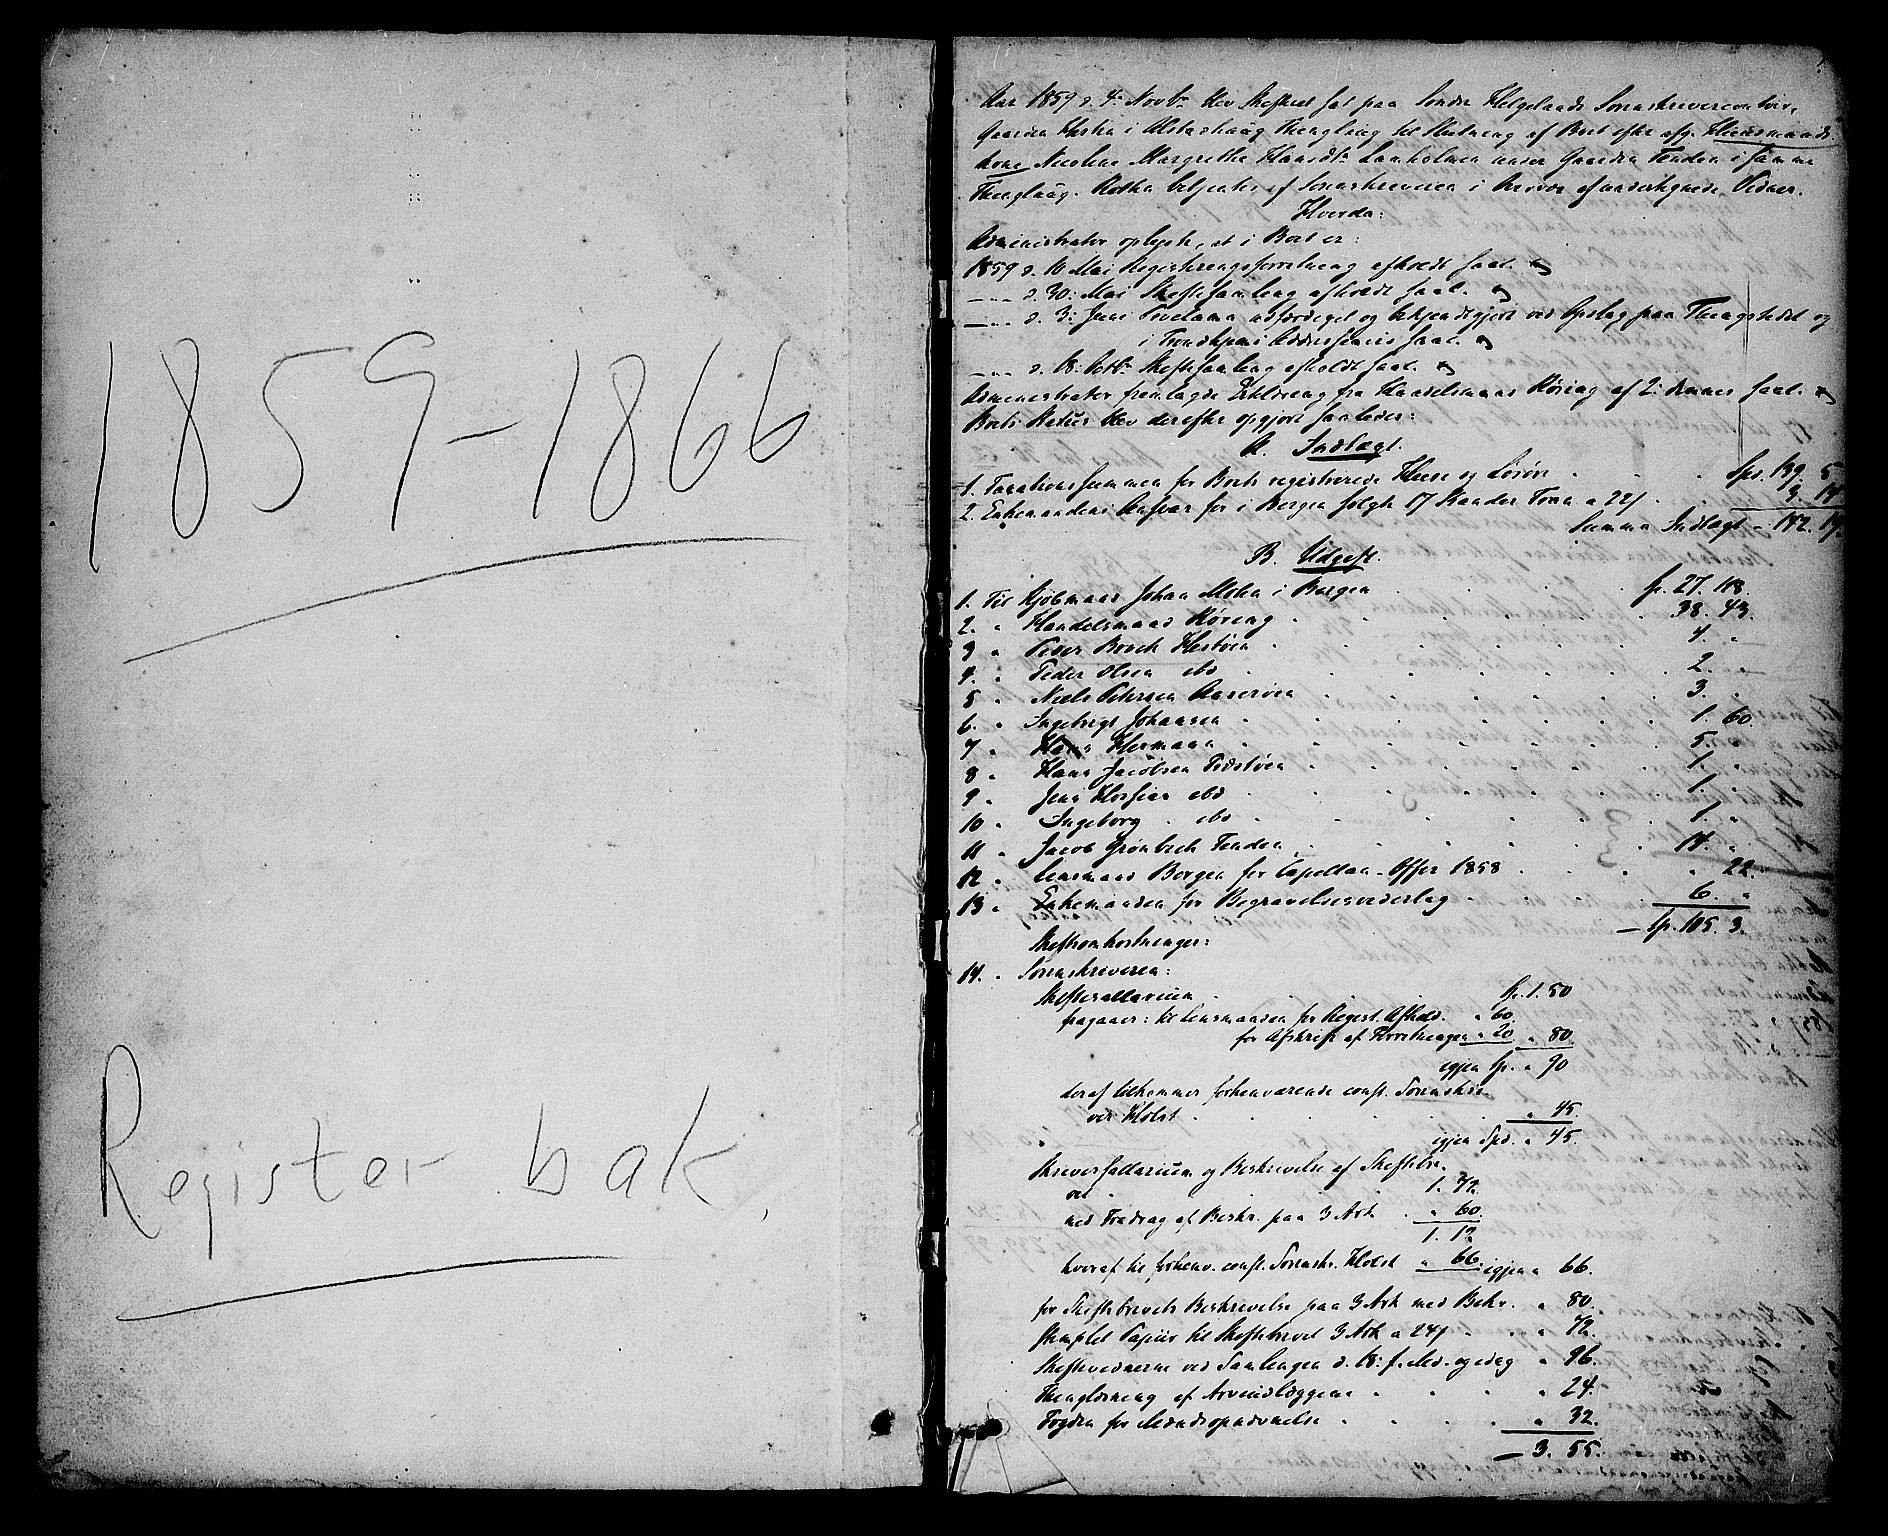 1859-1866
Register bak.
Aar 1859 d. 4: Novbr blev Skifteret sat paa Søndre Helgelands Sorenskriverembeds
Gaarden i Alstahaug Thinglaug til Slutning af Boet efter afg. Huusmands
kone Nicoline Margrethe Hansdtr Langholmen under Gaarden Tenden i samme
Thinglaug. Retten betjentes af Sorenskriveren i Overvær af undertegnede Vidner.
Hvorda:
Administrator oplyste, at i Boet er:
1859 d. 10 Mai Registreringsforretning afholdt saal.
d. 30: Mai Skiftesamling afholdt saal.
d. 3: Juni Proclama udfærdiget og bekjendtgjort ved Opslag paa Thingstedet og
i Trondhjems Adresseavis saal.
d. 18: Octbr Skiftesamling afholdt saal.
Administrator fremlagde Erklæring fra Handelsmand Røring af 2: dennes saal.
Boets Status blev derefter opgjort saaledes:
A. Indtægt.
1. Taxationssummen for Boets registrerede Huse og Løsøre Spd. 139. 5
2. Enkemandens Ansvar for i Bergen solgte 17 Kander Tran a 22/
Summa Indtægt
B. Udgift.
1. Til Kjøbmand Johan Mohn i Bergen Sp. 27. 118.
2. " Handelsmand Røring 38. 43.
3 " Peder Borch Hestøen 4. "
4. " Peder Olsen ibd 2. "
5 " Niels Petersen 3. "
6. " Ingebrigt Johansen 1. 60.
7 " Hans Hermann 5. "
8 " Hans Jacobsen 1. "
9 " Jens ibd 1. "
10 " Ingeborg ibd 1. "
11 " Jacob Grønbech Tenden 14. "
12 " Lensmand Borgen for Capellan-Offer 1858 " 22.
13 " Enkemanden for Begravelsesvederlag 6. "
Sp. 105. 3.
Skifteomkostninger:
14. " Sorenskriveren:
Skiftesallarium Sp. 1. 50
fragaaer: til Lensmanden for Regist. Afhold. " 60
for Afskrift af Forretningen " 20 " 80
igjen Sp. " 90
deraf tilkommer forhenværende const. Sorenskri-
ver Holst " 45.
igjen Spd. " 45.
Skriversallarium og Beskrivelse af Skiftebre-
vet 1. 72.
med Fradrag af Beskr. paa 3 Ark " 60.
1. 12.
hvoraf til forhenv. const. Sorenskr. Holst " 66. igjen " 66.
for Skiftebrevets Beskrivelse paa 3 Ark med Bekr. " 80.
Stemplet Papiir til Skiftebrevet 3 Ark a 24/ " 72.
Skiftevidnerne ved Samlingen d. 18: f. Md. og idag " 96.
Thinglæsning af Arveudlæggene " 24.
Fogden for Decidsopnævnelse " 32.
3. 55.